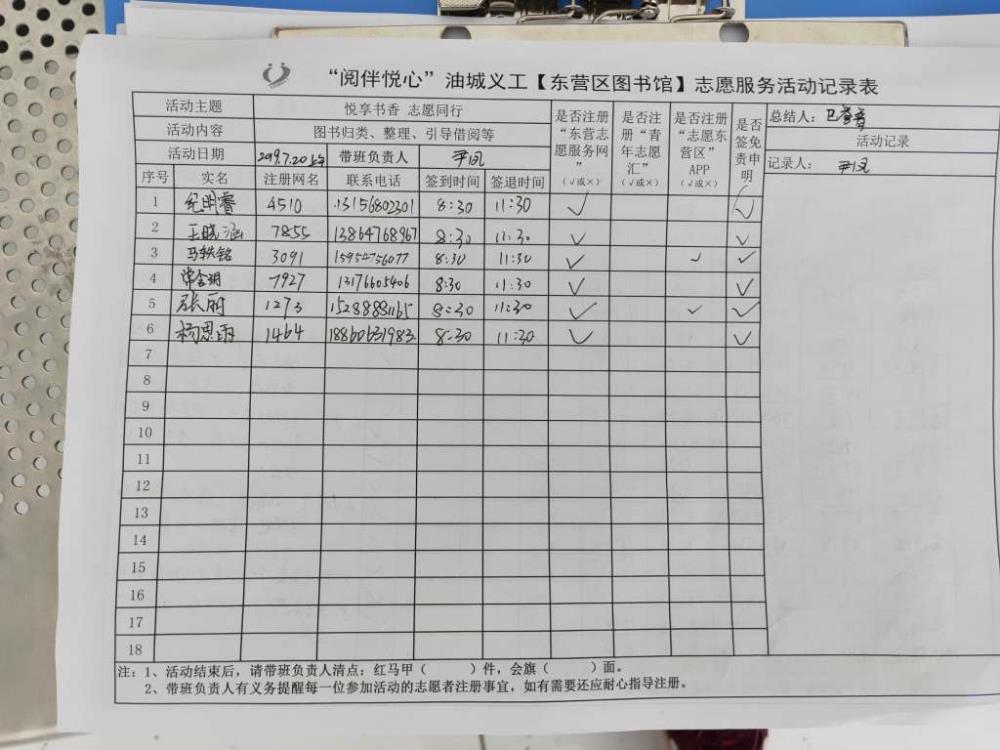 “阅伴悦心”油城义工【东营区图书馆】志愿服务活动记录表
活动主题 悦享书香 志愿同行 是否注册“东营志愿服务网” (√或×) 是否注册“青年志愿汇” (√或×) 是否注册“志愿东营区”APP (√或×) 是否签免责申明 总结人：
活动内容 图书归类、整理、引导借阅等 活动记录
活动日期 2019.7.20上午 带班负责人 尹凤 记录人： 尹凤
序号 实名 注册网名 联系电话 签到时间 签退时间
1 纪明睿 4510 13156802301 8:30 11:30 ✓ ✓
2 王晓涵 7855 13864768967 8:30 11:30 ✓ ✓
3 马轶铭 3091 15954756077 8:30 11:30 ✓ ✓ ✓
4 常含玥 7927 13176605406 8:30 11:30 ✓ ✓
5 张丽 1273 15288881165 8:30 11:30 ✓ ✓ ✓
6 杨思雨 1464 18860631983 8:30 11:30 ✓ ✓
7
8
9
10
11
12
13
14
15
16
17
18
注：1、活动结束后，请带班负责人清点：红马甲（ ）件，会旗（ ）面。
2、带班负责人有义务提醒每一位参加活动的志愿者注册事宜，如有需要还应耐心指导注册。